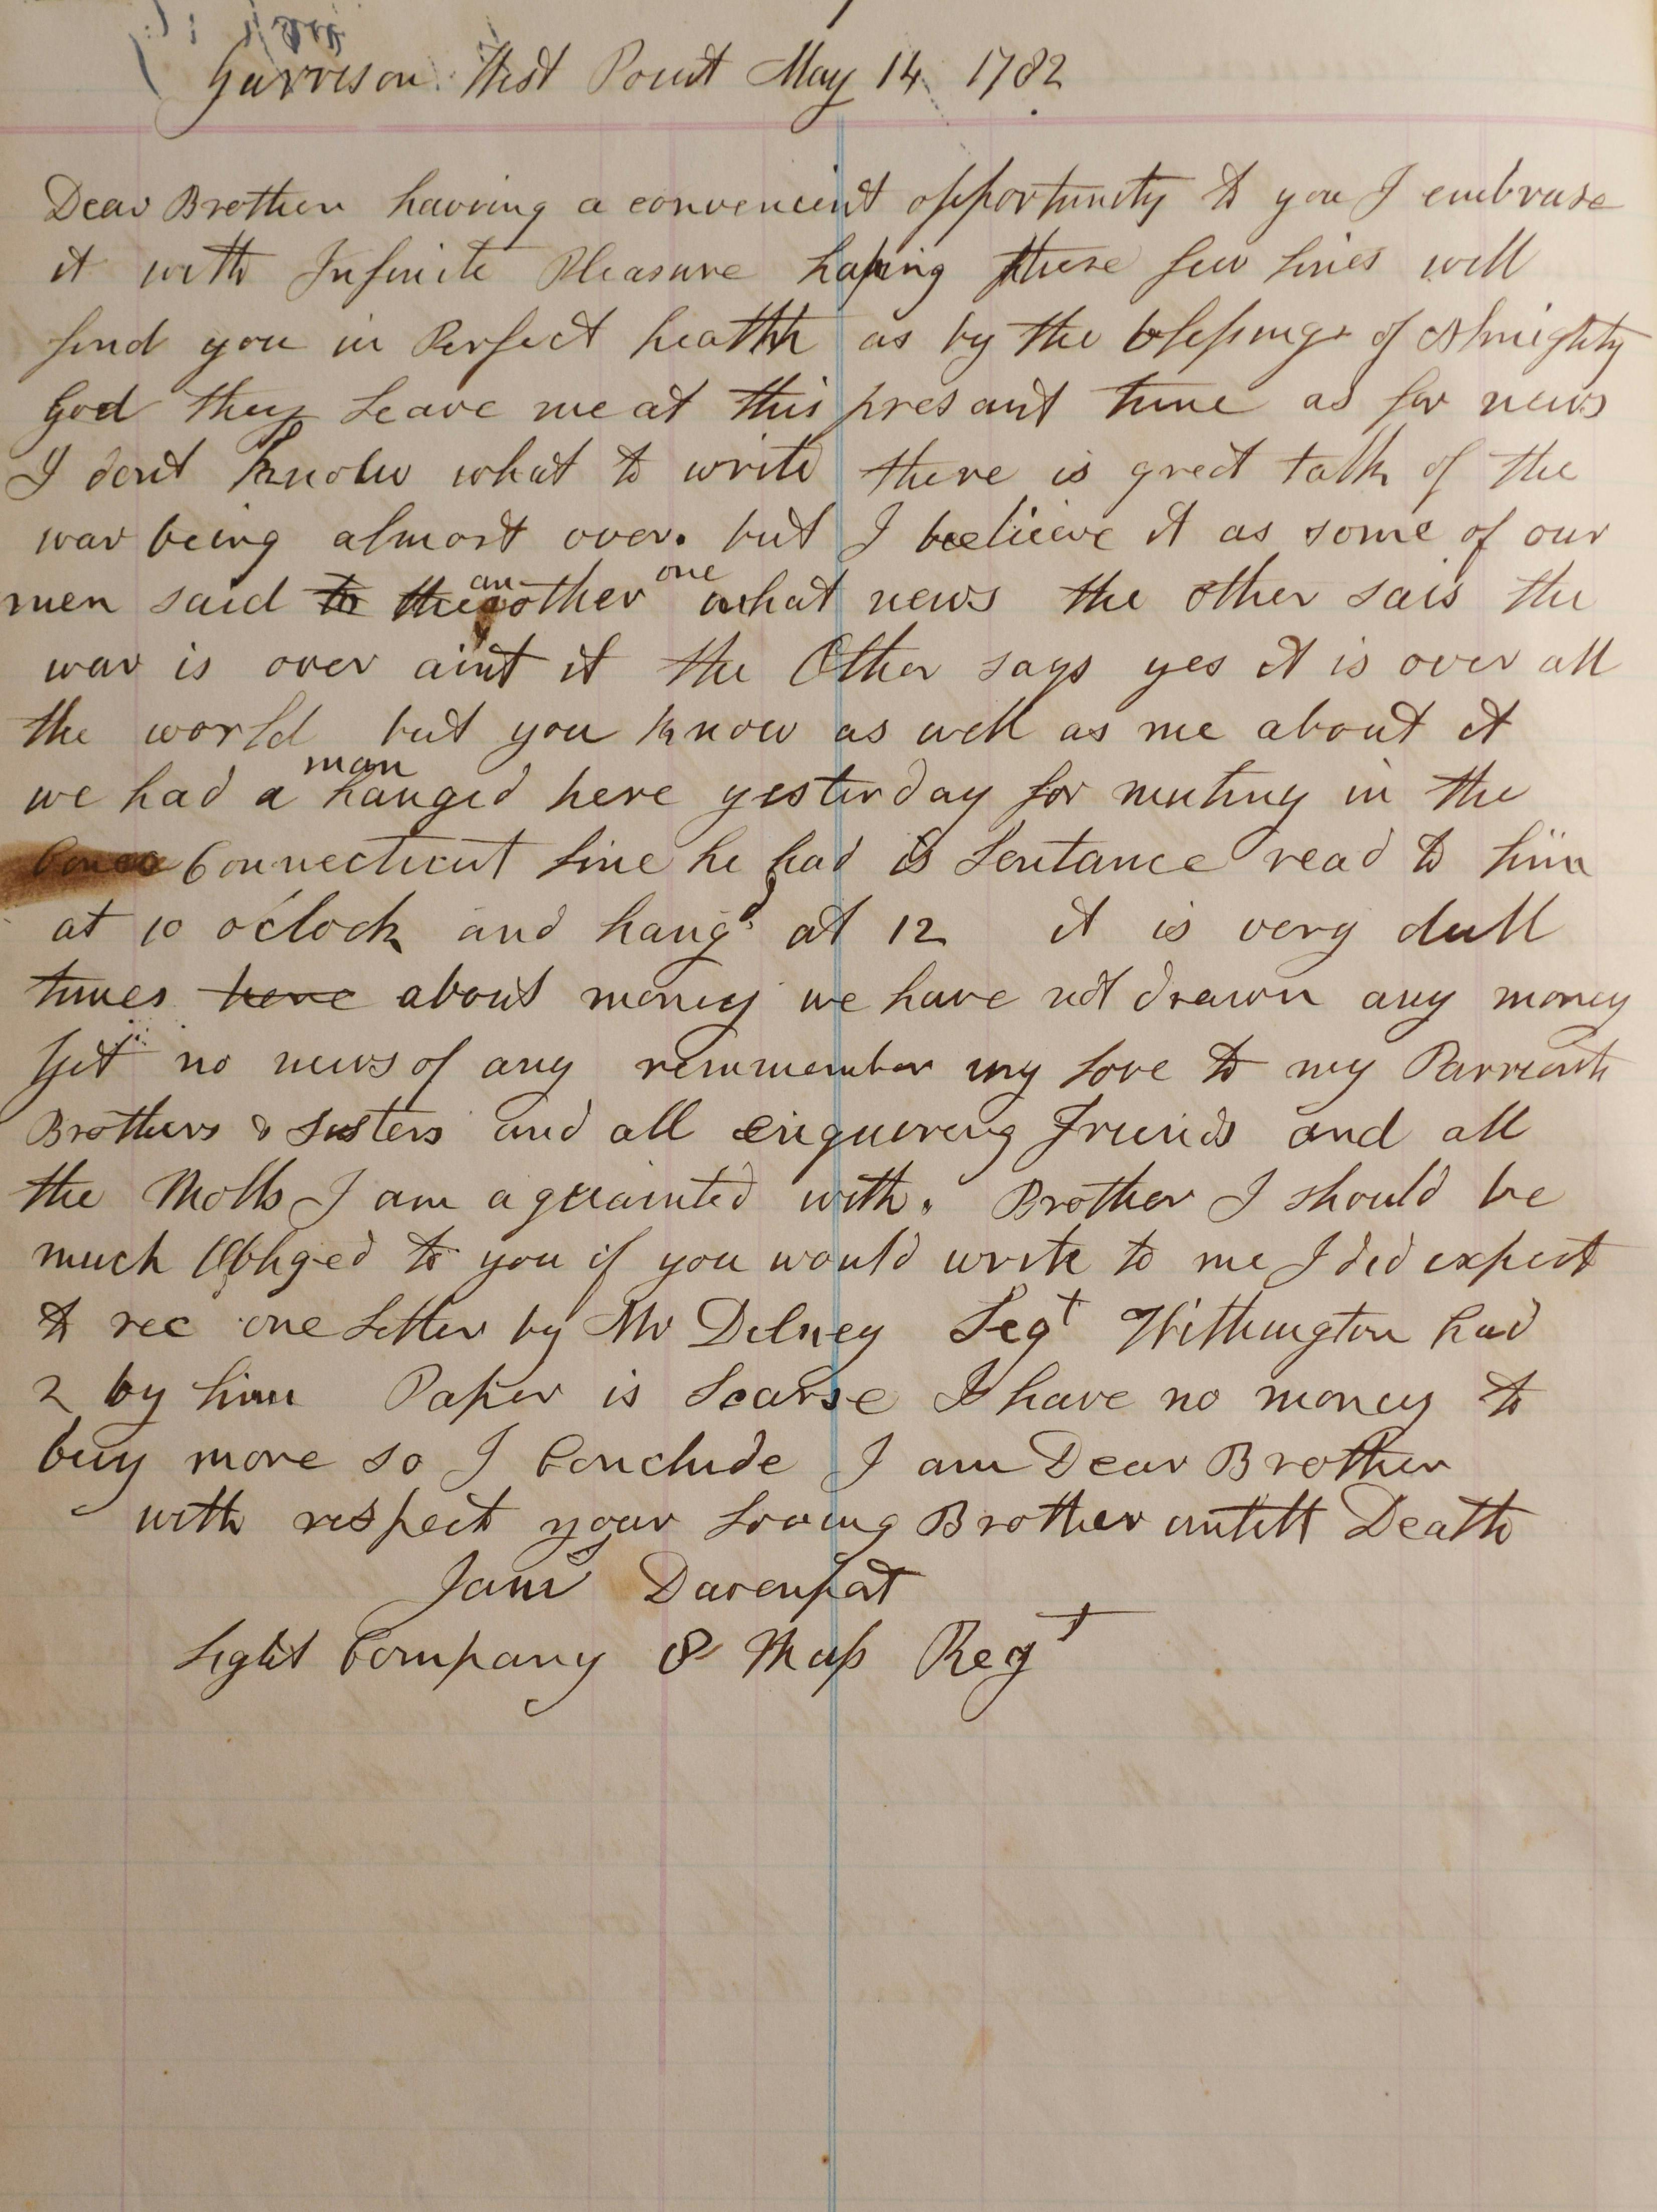 Garrison West Point May 14 1782
Dear Brother having a convenient opportunity to you I embrase
it with Infinite Pleasure hoping these few lines will
find you in Perfect heatth as by the blessings of Almighty
God they Leave me at this presant time as for news
I dont know what to write there is gret talk of the
war being almost over. but I beelieve it as some of our
men said to the another one what news the other sais the
war is over aint it the Other says yes it is over all
the world but you know as well as me about it
we had a man hanged here yesterday for mutiny in the
Connecticut line he had is Sentance read to him
at 10 oclock and hangd at 12 it is very dull
times here about money we have not drawn any money
yit no news of any remmember my love to my Parrents
Brothers & Susters and all enquireing Friends and all
the Molls I am aquainted with. Brother I should be
much Obliged to you if you would write to me I did expect
to rec one Letter by Mr Delney Segt Withington had
2 by him Paper is Scarse I have no money to
buy more so I Conclude I am Dear Brother
with respect your Loving Brother untill Death
Jams Davenpat
Light Company 8 Mass Regt